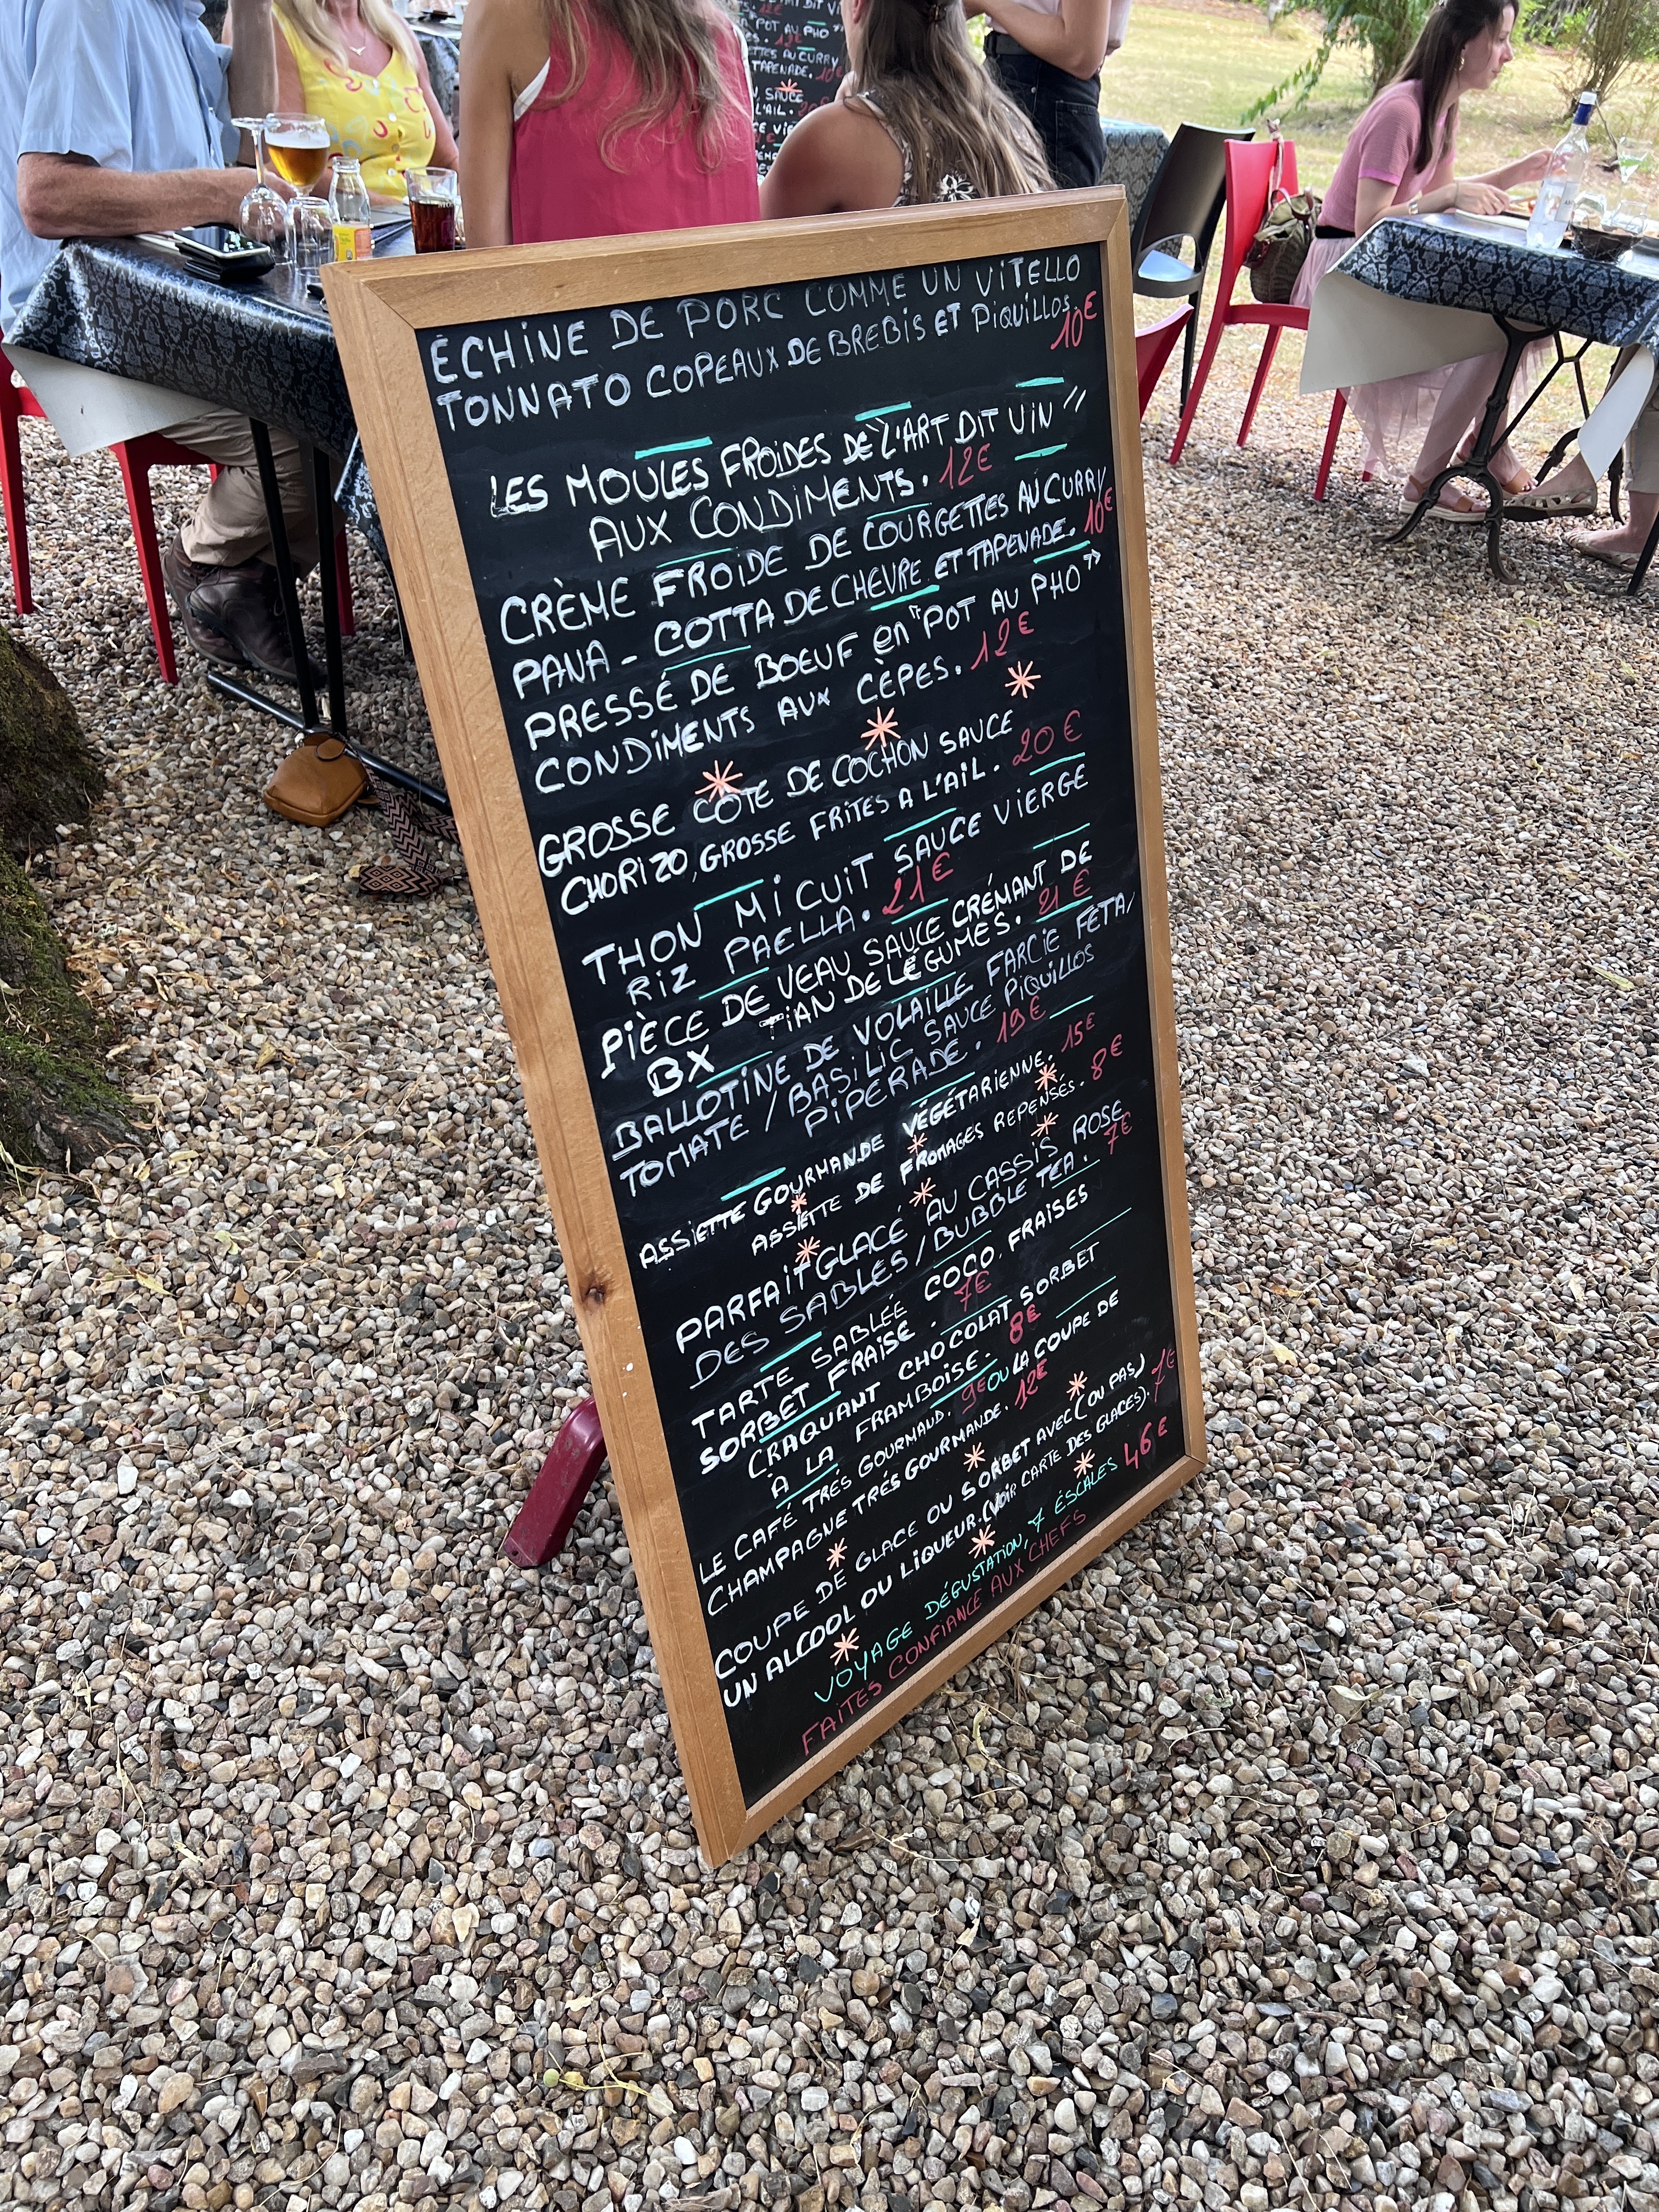 POT AU PHO
AU CURRY
TAPENADE. 10€
SAUCE
L'AIL.
ÉCHINE DE PORC COMME UN VITELLO
TONNATO COPEAUX DE BREBIS ET PIQUILLOS. 10€
LES MOULES FROIDES DE "L'ART DIT VIN"
AUX CONDIMENTS. 12€
CRÈME FROIDE DE COURGETTES AU CURRY
PANA-COTTA DE CHEVRE ET TAPENADE. 10€
PRESSÉ DE BOEUF en "POT AU PHO"
CONDIMENTS AUX CÈPES. 12€
GROSSE CÔTE DE COCHON SAUCE
CHORIZO, GROSSE FRITES A L'AIL. 20€
THON MI CUIT SAUCE VIERGE
RIZ PAELLA. 21€
PIÈCE DE VEAU SAUCE CRÉMANT DE
BX TIAN DE LÉGUMES. 21€
BALLOTINE DE VOLAILLE FARCIE FETA/
TOMATE/BASILIC SAUCE PIQUILLOS
PIPERADE. 19€
ASSIETTE GOURMANDE VÉGÉTARIENNE. 15€
ASSIETTE DE FROMAGES REPENSÉS. 8€
PARFAIT GLACÉ AU CASSIS ROSE
DES SABLES/BUBBLE TEA. 7€
TARTE SABLÉE COCO. FRAISES
SORBET FRAISE. 7€
CRAQUANT CHOCOLAT SORBET
A LA FRAMBOISE. 8€
LE CAFÉ TRÉS GOURMAND. 9€ OU LA COUPE DE
CHAMPAGNE TRÉS GOURMANDE. 12€
COUPE DE GLACE OU SORBET AVEC (OU PAS)
UN ALCOOL OU LIQUEUR. (VOIR CARTE DES GLACES). 7€
VOYAGE DÉGUSTATION, 7 ÉSCALES 46€
FAITES CONFIANCE AUX CHEFS